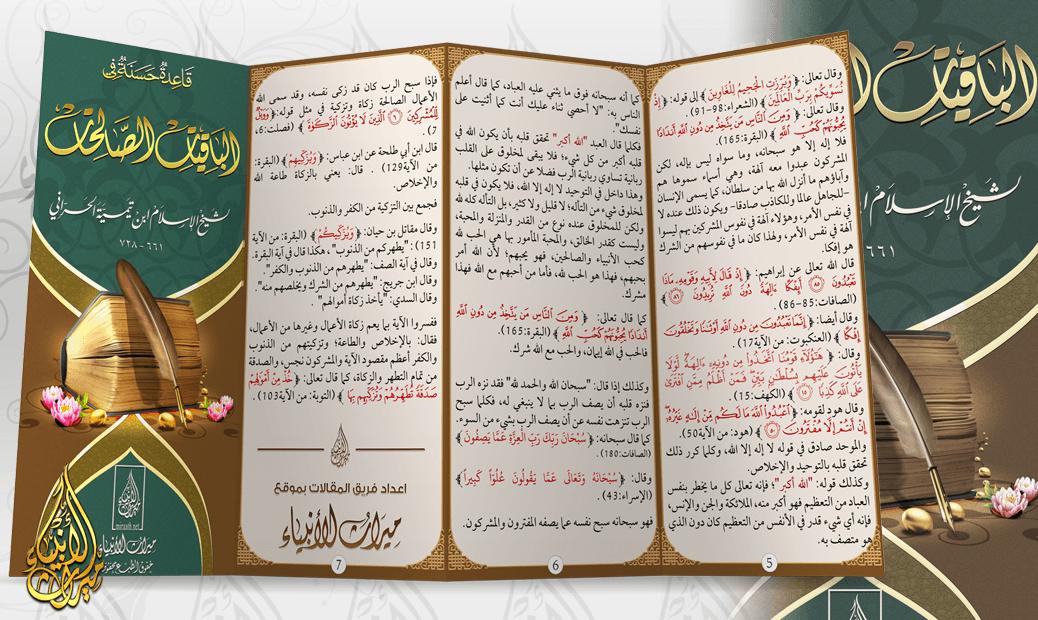 قاعدة حسنة في
الباقيات الصالحات
لشيخ الإسلام ابن تيمية الحراني
٦٦١ - ٧٢٨
miraath.net
ميراث الأنبياء
وقال تعالى: ﴿وَبُرِّزَتِ الْجَحِيمُ لِلْغَاوِينَ﴾ إلى قوله: ﴿إِذْ
نُسَوِّيكُمْ بِرَبِّ الْعَالَمِينَ﴾ (الشعراء:91-98).
وقال تعالى: ﴿وَمِنَ النَّاسِ مَنْ يَتَّخِذُ مِنْ دُونِ اللَّهِ أَنْدَادًا
يُحِبُّونَهُمْ كَحُبِّ اللَّهِ﴾ (البقرة:165).
فلا إله إلا هو سبحانه، وما سواه ليس بإله، لكن
المشركون عبدوا معه آلهة، وهي أسماء سموها هم
وآباؤهم ما أنزل الله بها من سلطان، كما يسمى الإنسان
-للجاهل عالما وللكاذب صادقا- ويكون ذلك عنده لا
في نفس الأمر، وهؤلاء آلهة في نفوس المشركين بهم ليسوا
آلهة في نفس الأمر، ولهذا كان ما في نفوسهم من الشرك
هو إفكا.
قال الله تعالى عن إبراهيم: ﴿إِذْ قَالَ لِأَبِيهِ وَقَوْمِهِ مَاذَا
تَعْبُدُونَ ٨٥ أَئِفْكًا آلِهَةً دُونَ اللَّهِ تُرِيدُونَ ٨٦﴾
(الصافات:85-86).
وقال أيضا: ﴿إِنَّمَا تَعْبُدُونَ مِنْ دُونِ اللَّهِ أَوْثَانًا وَتَخْلُقُونَ
إِفْكًا﴾ (العنكبوت: من الآية17).
وقال: ﴿هَؤُلَاءِ قَوْمُنَا اتَّخَذُوا مِنْ دُونِهِ آلِهَةً لَوْلَا
يَأْتُونَ عَلَيْهِمْ بِسُلْطَانٍ بَيِّنٍ فَمَنْ أَظْلَمُ مِمَّنِ افْتَرَى
عَلَى اللَّهِ كَذِبًا ١٥﴾ (الكهف:15).
وقال هود لقومه: ﴿اعْبُدُوا اللَّهَ مَا لَكُمْ مِنْ إِلَهٍ غَيْرُهُ
إِنْ أَنْتُمْ إِلَّا مُفْتَرُونَ ٥٠﴾ (هود: من الآية50).
والموحد صادق في قوله لا إله إلا الله، وكلما كرر ذلك
تحقق قلبه بالتوحيد والإخلاص.
وكذلك قوله: "الله أكبر"؛ فإنه تعالى كل ما يخطر بنفس
العباد من التعظيم فهو أكبر منه، الملائكة والجن والإنس،
فإنه أي شيء قدر في الأنفس من التعظيم كان دون الذي
هو متصف به.
5
كما أنه سبحانه فوق ما يثني عليه العباده، كما قال أعلم
الناس به: "لا أحصي ثناء عليك أنت كما أثنيت على
نفسك".
فكلما قال العبد "الله أكبر" تحقق قلبه بأن يكون الله في
قلبه أكبر من كل شيء؛ فلا يبقى لمخلوق على القلب
ربانية تساوي ربانية الرب فضلا عن أن تكون مثلها.
وهذا داخل في التوحيد لا إله إلا الله، فلا يكون في قلبه
لمخلوق شيء من التأله؛ لا قليل ولا كثير، بل التأله كله لله
ولكن للمخلوق عنده نوع من القدر والمنزلة والمحبة،
وليست كقدر الخالق، والمحبة المأمور بها هي الحب لله
كحب الأنبياء والصالحين، فهو يحبهم؛ لأن الله أمر
بحبهم، فهذا هو الحب لله، فأما من أحبهم مع الله فهذا
مشرك.
كما قال تعالى: ﴿وَمِنَ النَّاسِ مَنْ يَتَّخِذُ مِنْ دُونِ اللَّهِ
أَنْدَادًا يُحِبُّونَهُمْ كَحُبِّ اللَّهِ﴾ (البقرة:165).
فالحب في الله إيمان، والحب مع الله شرك.
وكذلك إذا قال: "سبحان الله والحمد لله" فقد نزه الرب
فنزه قلبه أن يصف الرب بما لا ينبغي له، فكلما سبح
الرب تنزهت نفسه عن أن يصف الرب بشيء من السوء.
كما قال سبحانه: ﴿سُبْحَانَ رَبِّكَ رَبِّ الْعِزَّةِ عَمَّا يَصِفُونَ﴾
(الصافات:180).
وقال: ﴿سُبْحَانَهُ وَتَعَالَى عَمَّا يَقُولُونَ عُلُوًّا كَبِيراً﴾
(الإسراء:43).
فهو سبحانه سبح نفسه عما يصفه المفترون والمشركون.
6
فإذا سبح الرب كان قد زكى نفسه، وقد سمى الله
الأعمال الصالحة زكاة وتزكية في مثل قوله: ﴿وَوَيْلٌ
لِلْمُشْرِكِينَ ٦ الَّذِينَ لَا يُؤْتُونَ الزَّكَاةَ﴾ (فصلت:6،
7).
قال ابن أبي طلحة عن ابن عباس: ﴿وَيُزَكِّيهِمْ﴾ (البقرة:
من الآية129). قال: يعني بالزكاة طاعة الله
والإخلاص.
فجمع بين التزكية من الكفر والذنوب.
وقال مقاتل بن حيان: ﴿وَيُزَكِّيكُمْ﴾ (البقرة: من الآية
151): "يطهركم من الذنوب"، هكذا قال في آية البقرة.
وقال في آية الصف: "يطهرهم من الذنوب والكفر".
وقال ابن جريج: "يطهرهم من الشرك ويخلصهم منه".
وقال السدي: "يأخذ زكاة أموالهم".
ففسروا الآية بما يعم زكاة الأموال وغيرها من الأعمال،
فقال: بالإخلاص والطاعة؛ وتزكيتهم من الذنوب
والكفر أعظم مقصود الآية والمشركون نجس، والصدقة
من تمام التطهر والزكاة، كما قال تعالى: ﴿خُذْ مِنْ أَمْوَالِهِمْ
صَدَقَةً تُطَهِّرُهُمْ وَتُزَكِّيهِمْ بِهَا﴾ (التوبة: من الآية103).
اعداد فريق المقالات بموقع
ميراث الأنبياء
7
ميراث الأنبياء